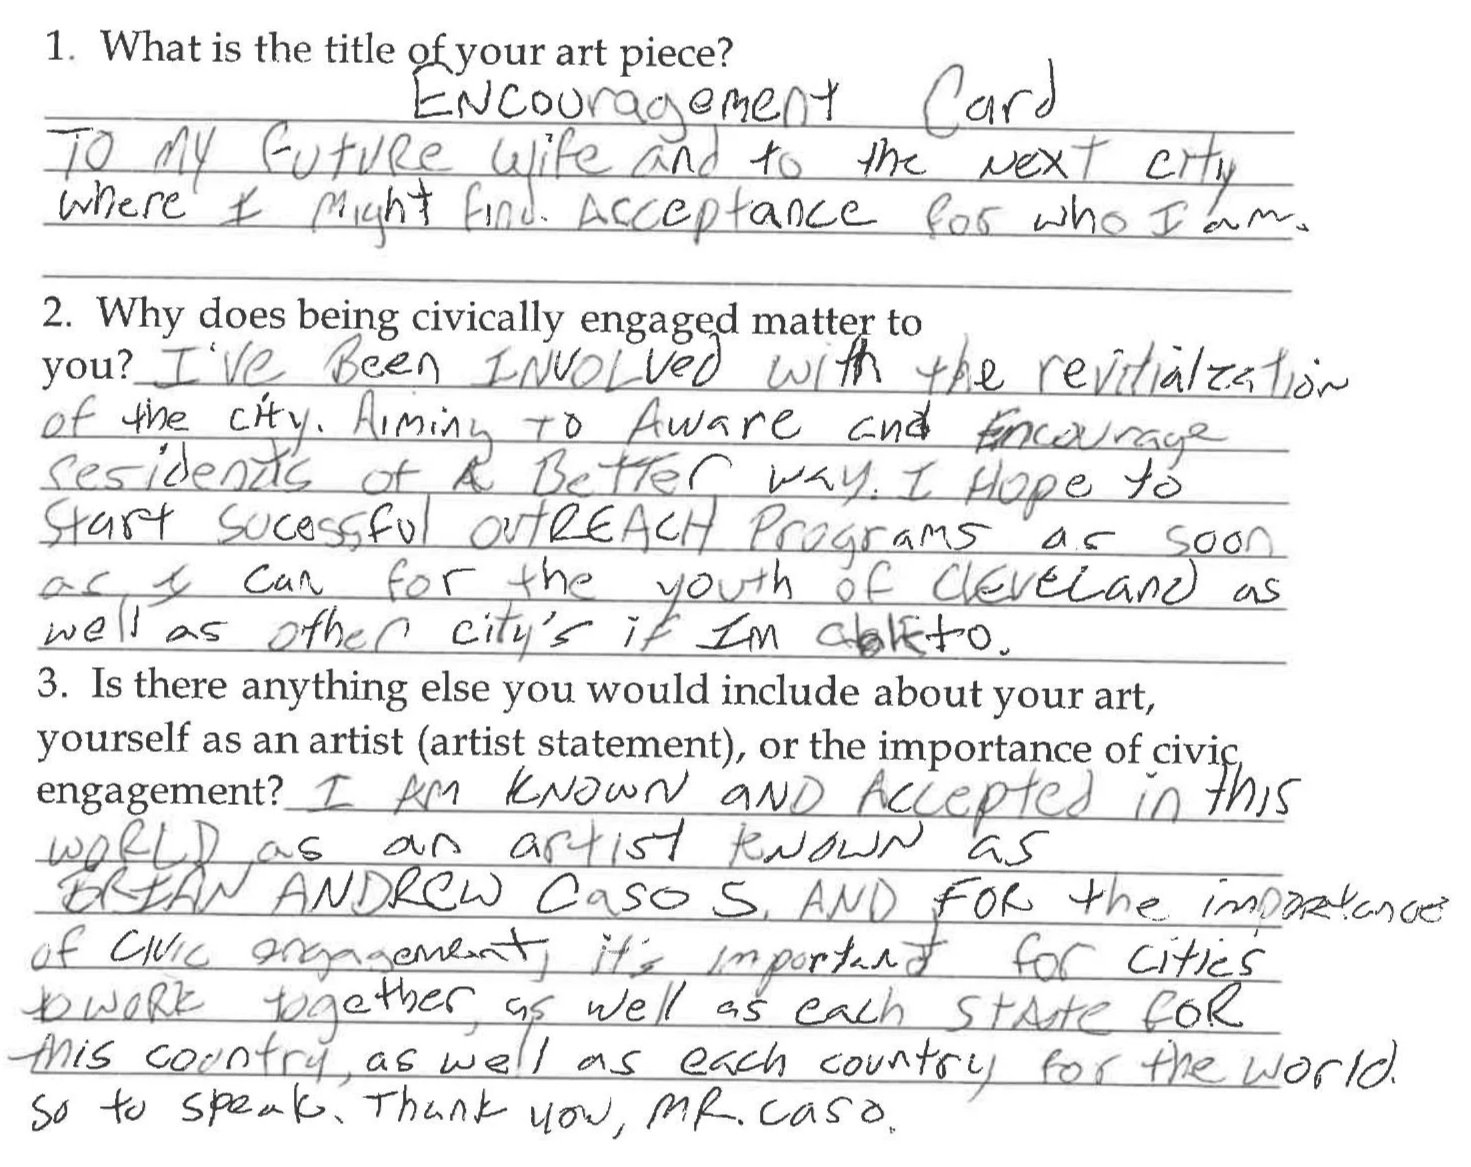 1. What is the title of your art piece?
ENCOUragement Card
TO MY FUTURE Wife and to the NEXT city
where I Might find. Acceptance for who I am.
2. Why does being civically engaged matter to
you? I've Been INVOLVed with the revitialzation
of the city. Aiming TO Aware and Encourage
residents of A Better way. I Hope to
Start sucessful OUTREACH Programs as soon
as I can for the youth of CLEVELand as
well as other city's if Im able to.
3. Is there anything else you would include about your art,
yourself as an artist (artist statement), or the importance of civic
engagement? I AM KNOWN aND Accepted in this
WORLD as an artist KNOWN as
BRIAN ANDREW Caso S. AND FOR the importance
of Civic engagement, it's important for cities
to WORK together, as well as each STAte FOR
this country, as well as each country for the world.
So to speak. Thank you, MR. caso.